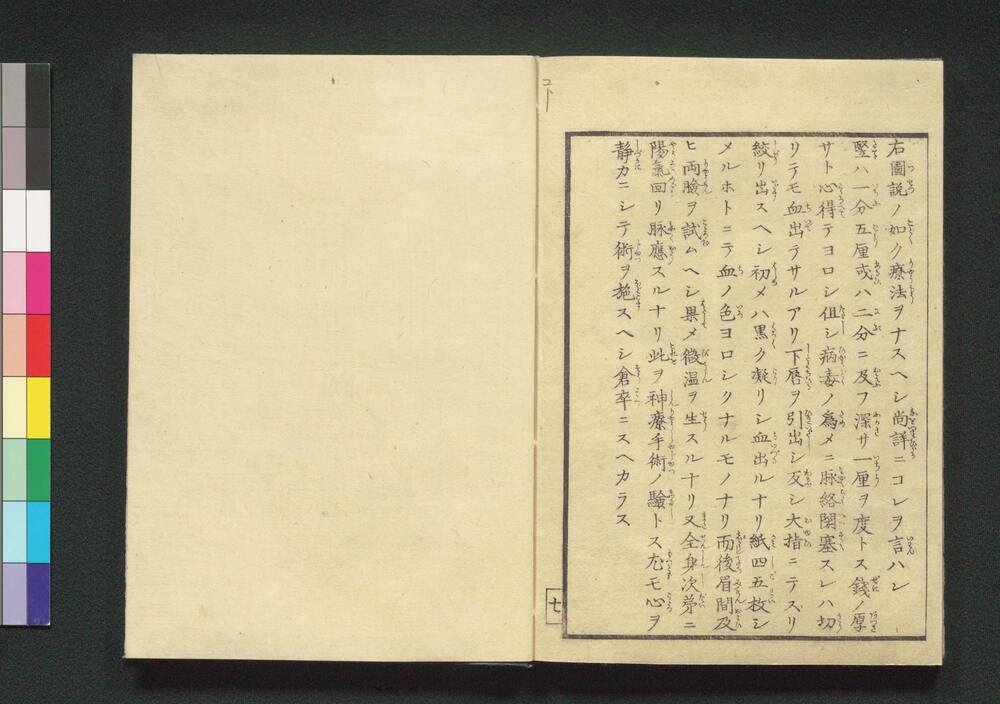 右圖説ノ如ク療法ヲナスヘシ尚詳ニコレヲ言ハン
竪ハ一分五厘或ハ二分ニ及フ深サ一厘ヲ度トス錢ノ厚
サト心得テヨロシ但シ病毒ノ爲メニ脉絡閉塞スレハ切
リテモ血出テサルアリ下唇ヲ引出シ反シ大指ニテスリ
絞リ出スヘシ初メハ黒ク凝リシ血出ルナリ紙四五枚シ
メルホトニテ血ノ色ヨロシクナルモノナリ而後眉間及
ヒ両臉ヲ試ムヘシ果メ微温ヲ生スルナリ又全身次苐ニ
陽氣回リ脉應スルナリ此ヲ神療手術ノ驗トス尤モ心ヲ
静カニシテ術ヲ施スヘシ倉卒ニスヘカラス
七